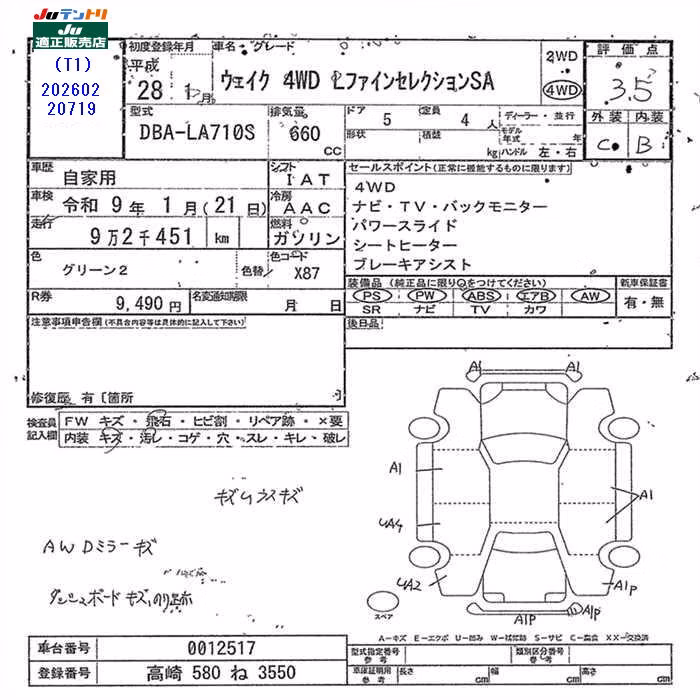 Juテントリ
Ju
適正販売店
(T1)
202602
20719
初度登録年月
平成
28
月
車名・グレード
ウェイク 4WD Lファインセレクション SA
2WD
4WD
評価点
3.5
型式
DBA-LA710S
排気量
660
CC
ドア
5
定員
4
人
形状
積載
kg
ディーラー・並行
モデル年式
年式
ハンドル 左・右
外装 内装
C B
車歴
自家用
シフト
IAT
車検
令和 9年 1月(21日)
冷房
AAC
走行
9万2千451 km
燃料
ガソリン
色
グリーン2
色替
色コード
X87
R券
9,490円
名変通知期限
月 日
セールスポイント(正常に機能するものに限ります)
4WD
ナビ・TV・バックモニター
パワースライド
シートヒーター
ブレーキアシスト
装備品(純正品に限り○をつけてください)
PS PW ABS エアB AW
SR ナビ TV カワ
新車保証書
有・無
後日品
注意事項申告欄(不具合内容等は具体的に記入して下さい)
修復歴 有〔箇所
検査員
記入欄
FW キズ・飛石・ヒビ割・リペア跡・×要
内装 キズ・汚レ・コゲ・穴・スレ・キレ・破レ
AWDミラーキズ
A1
A1
A1
A1
UA4
UA2
A1P
A1P
A1P
スペア
A-キズ E-エクボ U-凹み W-補修跡 S-サビ C-腐食 XX-交換済
車台番号
0012517
登録番号
高崎 580 ね 3550
型式指定番号
参考
類別区分番号
参考
車庫証明用
参考
長さ
cm
幅
cm
高さ
cm